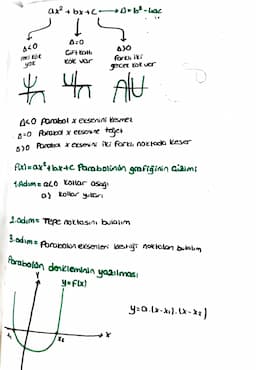 ax²+bx+c → Δ=b²-4ac
Δ<0 Δ=0 Δ>0
reel kök yok
Çift katlı kök var
Farklı iki gerçek kök var
Δ<0 Parabol x eksenini kesmez
Δ=0 Parabol x eksenine teğet
Δ>0 Parabol x eksenini iki farklı noktada keser
f(x)=ax²+bx+c Parabolünün grafiğinin çizimi
1.Adım= a<0 kollar aşağı
a> kollar yukarı
2.adım= Tepe noktasını bulalım
3.adım= Parabolün eksenleri kestiği noktaları bulalım
Parabolün denkleminin yazılması
y y=f(x)
y=a.(x-x₁).(x-x₂)
x₁ x₂ x